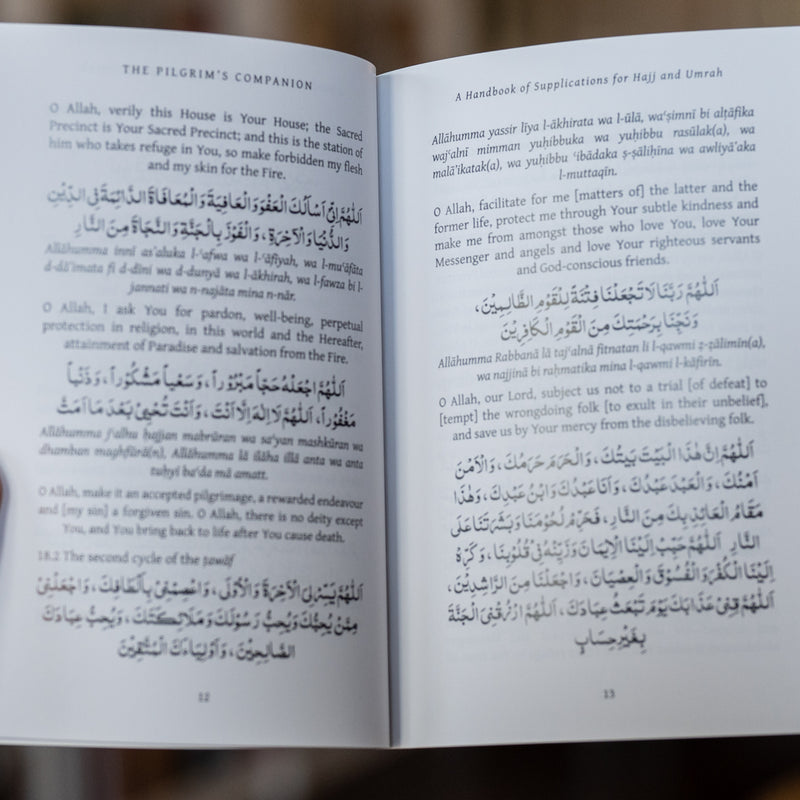 THE PILGRIM'S COMPANION
O Allah, verily this House is Your House; the Sacred
Precinct is Your Sacred Precinct; and this is the station of
him who takes refuge in You, so make forbidden my flesh
and my skin for the Fire.
اَللّٰهُمَّ اِنِّيْ اَسْأَلُكَ الْعَفْوَ وَالْعَافِيَةَ وَالْمُعَافَاةَ الدَّائِمَةَ فِي الدِّيْنِ
وَالدُّنْيَا وَالْآخِرَةِ، وَالْفَوْزَ بِالْجَنَّةِ وَالنَّجَاةَ مِنَ النَّارِ
Allāhumma innī as'aluka l-ʿafwa wa l-ʿāfiyah, wa l-muʿāfāta
d-dā'imata fī d-dīni wa d-dunyā wa l-ākhirah, wa l-fawza bi l-
jannati wa n-najāta mina n-nār.
O Allah, I ask You for pardon, well-being, perpetual
protection in religion, in this world and the Hereafter,
attainment of Paradise and salvation from the Fire.
اَللّٰهُمَّ اجْعَلْهُ حَجّاً مَبْرُوْراً، وَسَعْياً مَشْكُوْراً، وَذَنْباً
مَغْفُوْراً، اَللّٰهُمَّ لَا اِلٰهَ اِلَّا اَنْتَ، وَاَنْتَ تُحْيِيْ بَعْدَ مَا اَمَتَّ
Allāhumma jʿalhu ḥajjan mabrūran wa saʿyan mashkūran wa
dhamban maghfūrā(n), Allāhumma lā ilāha illā anta wa anta
tuḥyī baʿda mā amatt.
O Allah, make it an accepted pilgrimage, a rewarded endeavour
and [my sin] a forgiven sin. O Allah, there is no deity except
You, and You bring back to life after You cause death.
18.2 The second cycle of the ṭawāf
اَللّٰهُمَّ يَسِّرْ لِيَ الْآخِرَةَ وَالْأُوْلَى، وَاعْصِمْنِيْ بِأَلْطَافِكَ، وَاجْعَلْنِيْ
مِمَّنْ يُحِبُّكَ وَيُحِبُّ رَسُوْلَكَ وَمَلَائِكَتَكَ، وَيُحِبُّ عِبَادَكَ
الصَّالِحِيْنَ، وَاَوْلِيَاءَكَ الْمُتَّقِيْنَ
12
A Handbook of Supplications for Hajj and Umrah
Allāhumma yassir līya l-ākhirata wa l-ūlā, waʿṣimnī bi alṭāfika
wajʿalnī mimman yuḥibbuka wa yuḥibbu rasūlak(a), wa
malā'ikatak(a), wa yuḥibbu ʿibādaka ṣ-ṣāliḥīna wa awliyā'aka
l-muttaqīn.
O Allah, facilitate for me [matters of] the latter and the
former life, protect me through Your subtle kindness and
make me from amongst those who love You, love Your
Messenger and angels and love Your righteous servants
and God-conscious friends.
اَللّٰهُمَّ رَبَّنَا لَا تَجْعَلْنَا فِتْنَةً لِلْقَوْمِ الظَّالِمِيْنَ،
وَنَجِّنَا بِرَحْمَتِكَ مِنَ الْقَوْمِ الْكَافِرِيْنَ
Allāhumma Rabbanā lā tajʿalnā fitnatan li l-qawmi ẓ-ẓālimīn(a),
wa najjinā bi raḥmatika mina l-qawmi l-kāfirīn.
O Allah, our Lord, subject us not to a trial [of defeat] to
[tempt] the wrongdoing folk [to exult in their unbelief],
and save us by Your mercy from the disbelieving folk.
اَللّٰهُمَّ اِنَّ هٰذَا الْبَيْتَ بَيْتُكَ، وَالْحَرَمَ حَرَمُكَ، وَالْاَمْنَ
اَمْنُكَ، وَالْعَبْدَ عَبْدُكَ، وَاَنَا عَبْدُكَ وَابْنُ عَبْدِكَ، وَهٰذَا
مَقَامُ الْعَائِذِ بِكَ مِنَ النَّارِ، فَحَرِّمْ لُحُوْمَنَا وَبَشَرَتَنَا عَلَى
النَّارِ اَللّٰهُمَّ حَبِّبْ اِلَيْنَا الْاِيْمَانَ وَزَيِّنْهُ فِيْ قُلُوْبِنَا، وَكَرِّهْ
اِلَيْنَا الْكُفْرَ وَالْفُسُوْقَ وَالْعِصْيَانَ، وَاجْعَلْنَا مِنَ الرَّاشِدِيْنَ،
اَللّٰهُمَّ قِنِيْ عَذَابَكَ يَوْمَ تَبْعَثُ عِبَادَكَ، اَللّٰهُمَّ ارْزُقْنِيَ الْجَنَّةَ
بِغَيْرِ حِسَابٍ
13